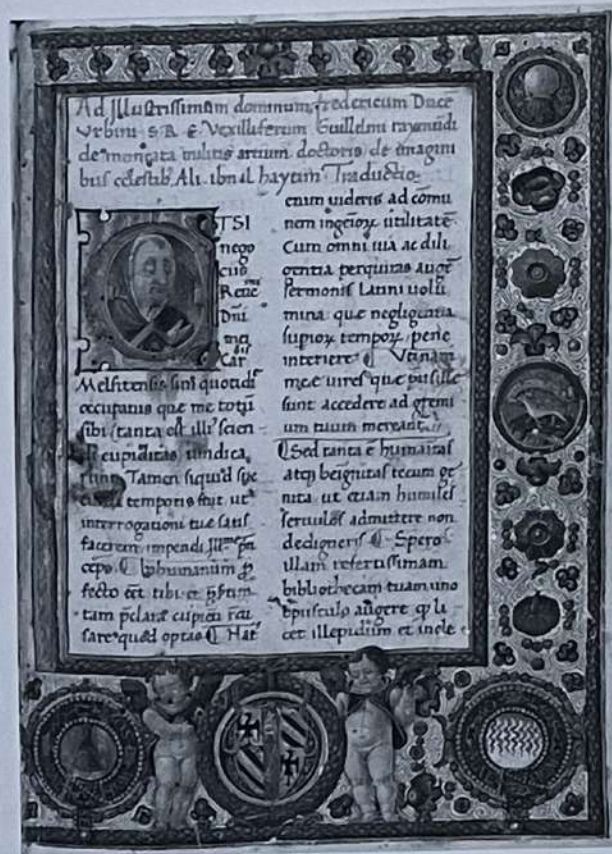 Ad Illustrissimum dominum fredericum Ducē
Vrbini S. R. E. Vexilliferum Guillelmi raymundi
de monçata militis artium doctoris de imagini
bus celestib' Ali. ibn il haytim Traductio.
ETSI
nego
cijs
Reue
Dni
mei
Car
Melfitensis sim quotidie
occupatus que me totū
sibi tanta est illi scien
cupiditas uindica
Tamen siquid
temporis fuit ut
interrogationi tue satis
facerem impendi
cepo. ¶ Inhumanum
fecto ēēt tibi et
tam p̄clarā cupienti
sare quod optas ¶ Nam
enim uideris ad cōmu
nem ingēioꝝ utilitatē
Cum omni uia ac dili
gentia perquiras augē
sermonis Latini uolu
mina que negligentia
supioꝝ tempoꝝ pene
interiere ¶ Vtinam
mee uires que pusille
sunt accedere ad gremi
um tuum mereant.
¶ Sed tanta ē humāitas
atq beīgnitas tecum ge
nita ut etiam humiles
seruulos admittere non
dedigneris ¶ Spero
illam refertissimam
bibliothecam tuam uno
opusculo augere q li
cet illepidum et incle